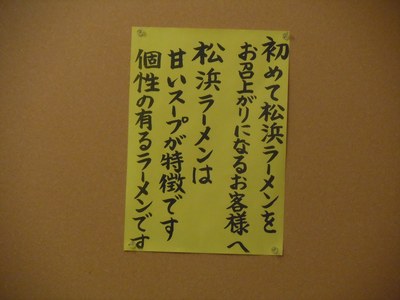 初めて松浜ラーメンを
お召上がりになるお客様へ
松浜ラーメンは
甘いスープが特徴です
個性の有るラーメンです